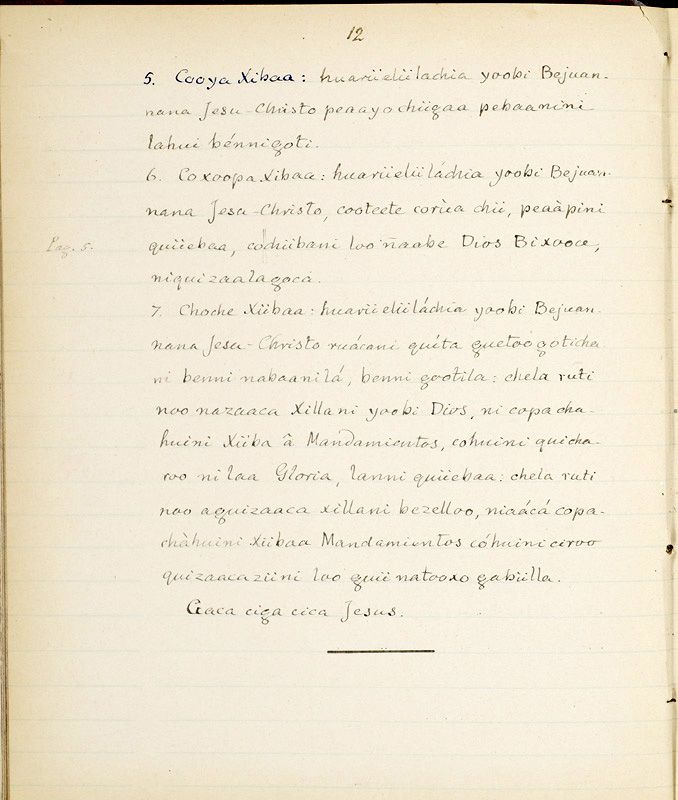 12
5. Cooya Xibaa: huariieliilachia yoobi Bejuan-
nana Jesu-Christo peaayo chiigaa pebaanini
lahui bénnigoti.
6. Coxoopa Xibaa: huariieliiláchia yoobi Bejuan-
nana Jesu-Christo, cooteete corìea chii, peaàpini
Pag. 5.
quiiebaa, cochiibani loo ñaabe Dios Bixooce,
niquizaalagoca.
7. Choche Xiibaa: huariieliiláchia yoobi Bejuan-
nana Jesu-Christo ruácani quíta guetoo goticha
ni benni nabaanilá, benni gootila: chela ruti
noo nazaaca Xillani yoobi Dios, ni copacha-
huini Xiiba â Mandamientos, cohuini quicha-
roo ni laa Gloria, lanni quiiebaa: chela ruti
noo aguizaaca xillani bezelloo, niaácá copa-
chàhuini Xiibaa Mandamientos cóhuini ciroo
quizaacaziini loo guii natooxo gabiilla.
Gaca ciga cica Jesus.